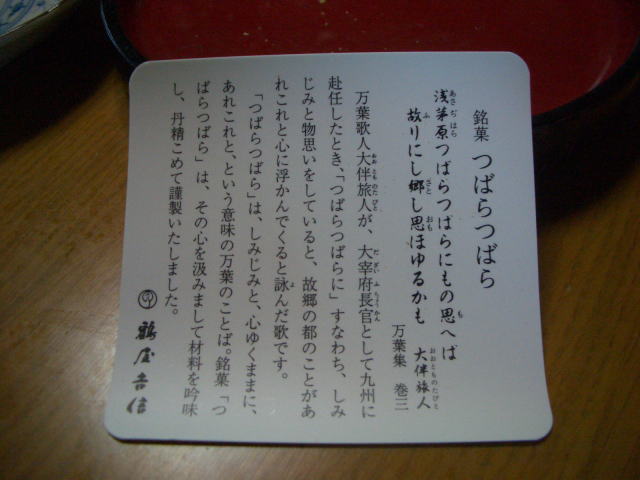 銘菓 つばらつばら
浅茅原つばらつばらにもの思へば
故りにし郷し思ほゆるかも
大伴旅人
万葉集 巻三
万葉歌人大伴旅人が、大宰府長官として九州に
赴任したとき、「つばらつばらに」すなわち、しみ
じみと物思いをしていると、故郷の都のことがあ
れこれと心に浮かんでくると詠んだ歌です。
「つばらつばら」は、しみじみと、心ゆくままに、
あれこれと、という意味の万葉のことば。銘菓「つ
ばらつばら」は、その心を汲みまして材料を吟味
し、丹精こめて謹製いたしました。
鶴屋吉信